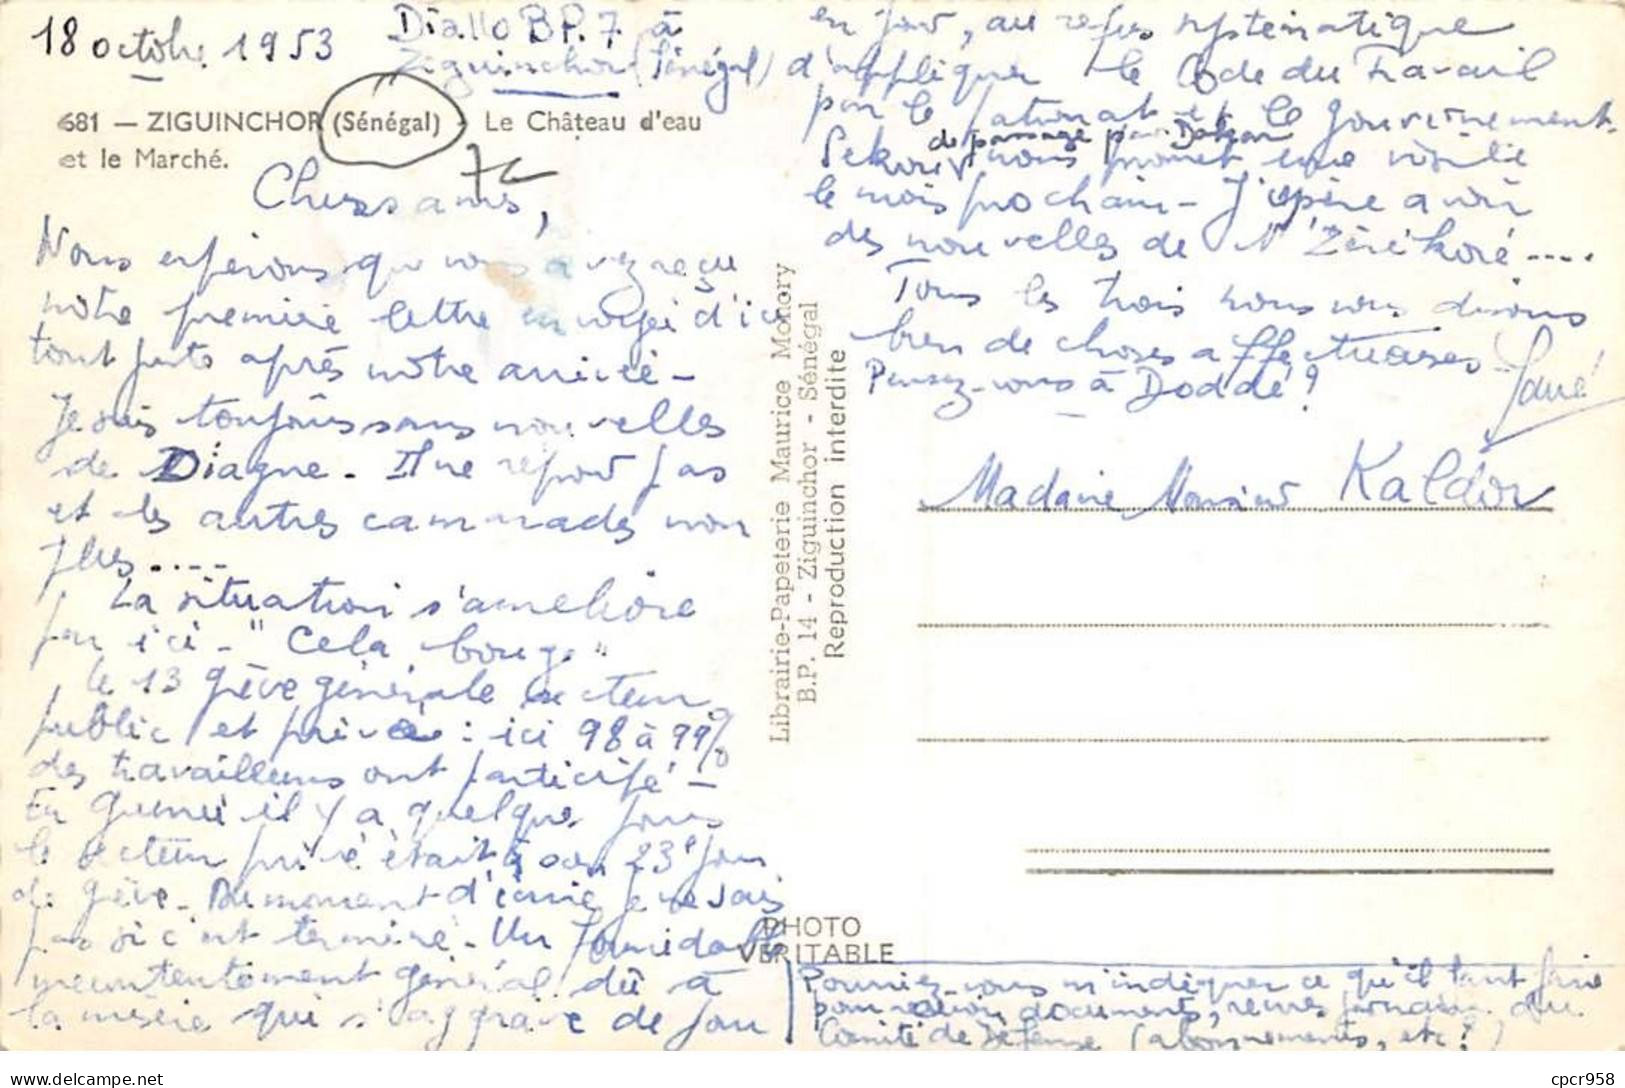 18 octobre 1953
Diallo B.P. 7 à
Ziguinchor (Sénégal)
681 — ZIGUINCHOR (Sénégal) - Le Château d'eau
et le Marché.
Chers amis,
Nous espérons que vous avez reçu
notre première lettre envoyée d'ici
tout juste après notre arrivée -
Je suis toujours sans nouvelles
de Diagne. Il ne répond pas
et les autres camarades non
plus.....
La situation s'améliore
par ici - "Cela bouge"
le 13 grève générale secteur
public et privé : ici 98 à 99%
des travailleurs ont participé -
En Guinée il y a quelques jours
le secteur privé était à son 23e jour
de grève. Au moment d'écrire je ne sais
pas si c'est terminé. Un formidable
mécontentement général dû à
la misère qui s'aggrave de jour
en jour, au refus systématique
d'appliquer le Code du Travail
par le patronat et le gouvernement.
de passage pour Dakar
Sekou nous promet une visite
le mois prochain - J'espère avoir
des nouvelles de N'Zérékoré....
Tous les trois nous vous disons
bien de choses affectueuses
Pensez-vous à Doddé ?
Madame Monsieur Kaldor
Librairie-Papeterie Maurice Molory
B.P. 14 - Ziguinchor - Sénégal
Reproduction interdite
PHOTO
VERITABLE
Pourriez-vous m'indiquer ce qu'il faut faire
pour avoir documents, revues, journaux du
Comité de Défense (abonnements, etc ?)
cpcr958